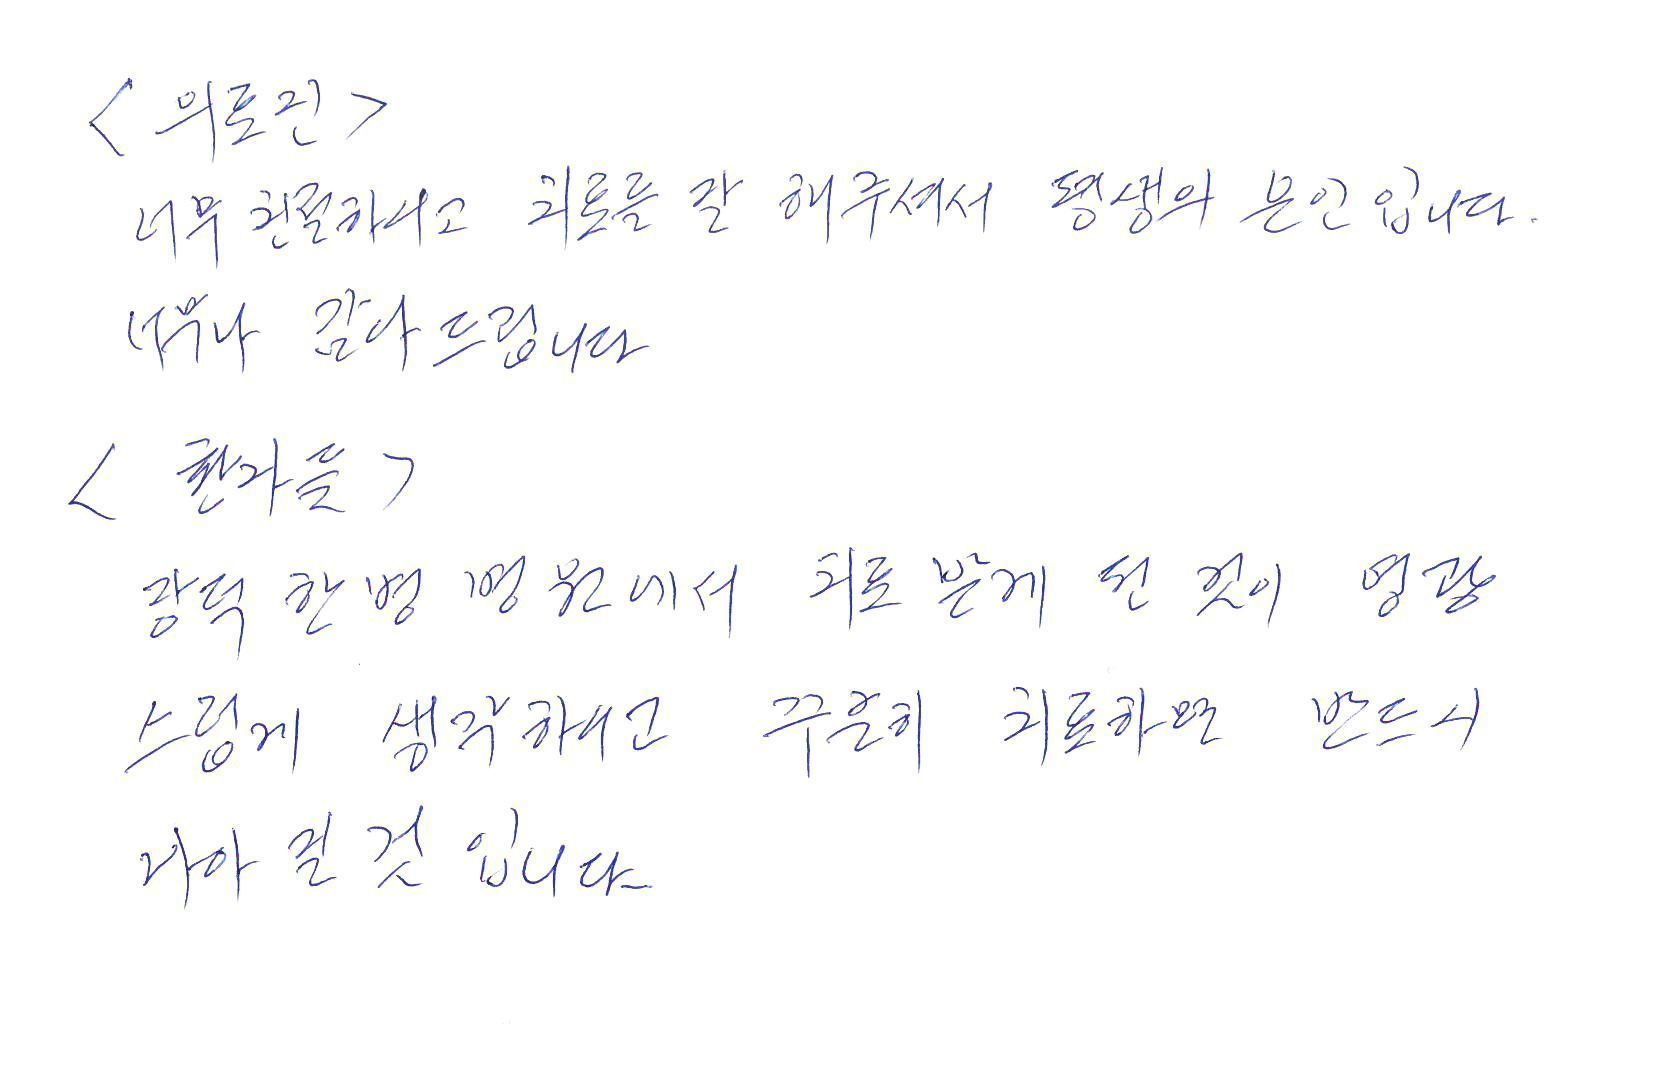 <의료진>
너무 친절하시고 치료를 잘 해주셔서 평생의 은인입니다.
너무나 감사드립니다
<환자들>
광덕 한방 병원에서 치료 받게 된 것이 영광
스럽게 생각하시고 꾸준히 치료하면 반드시
나아 질 것 입니다